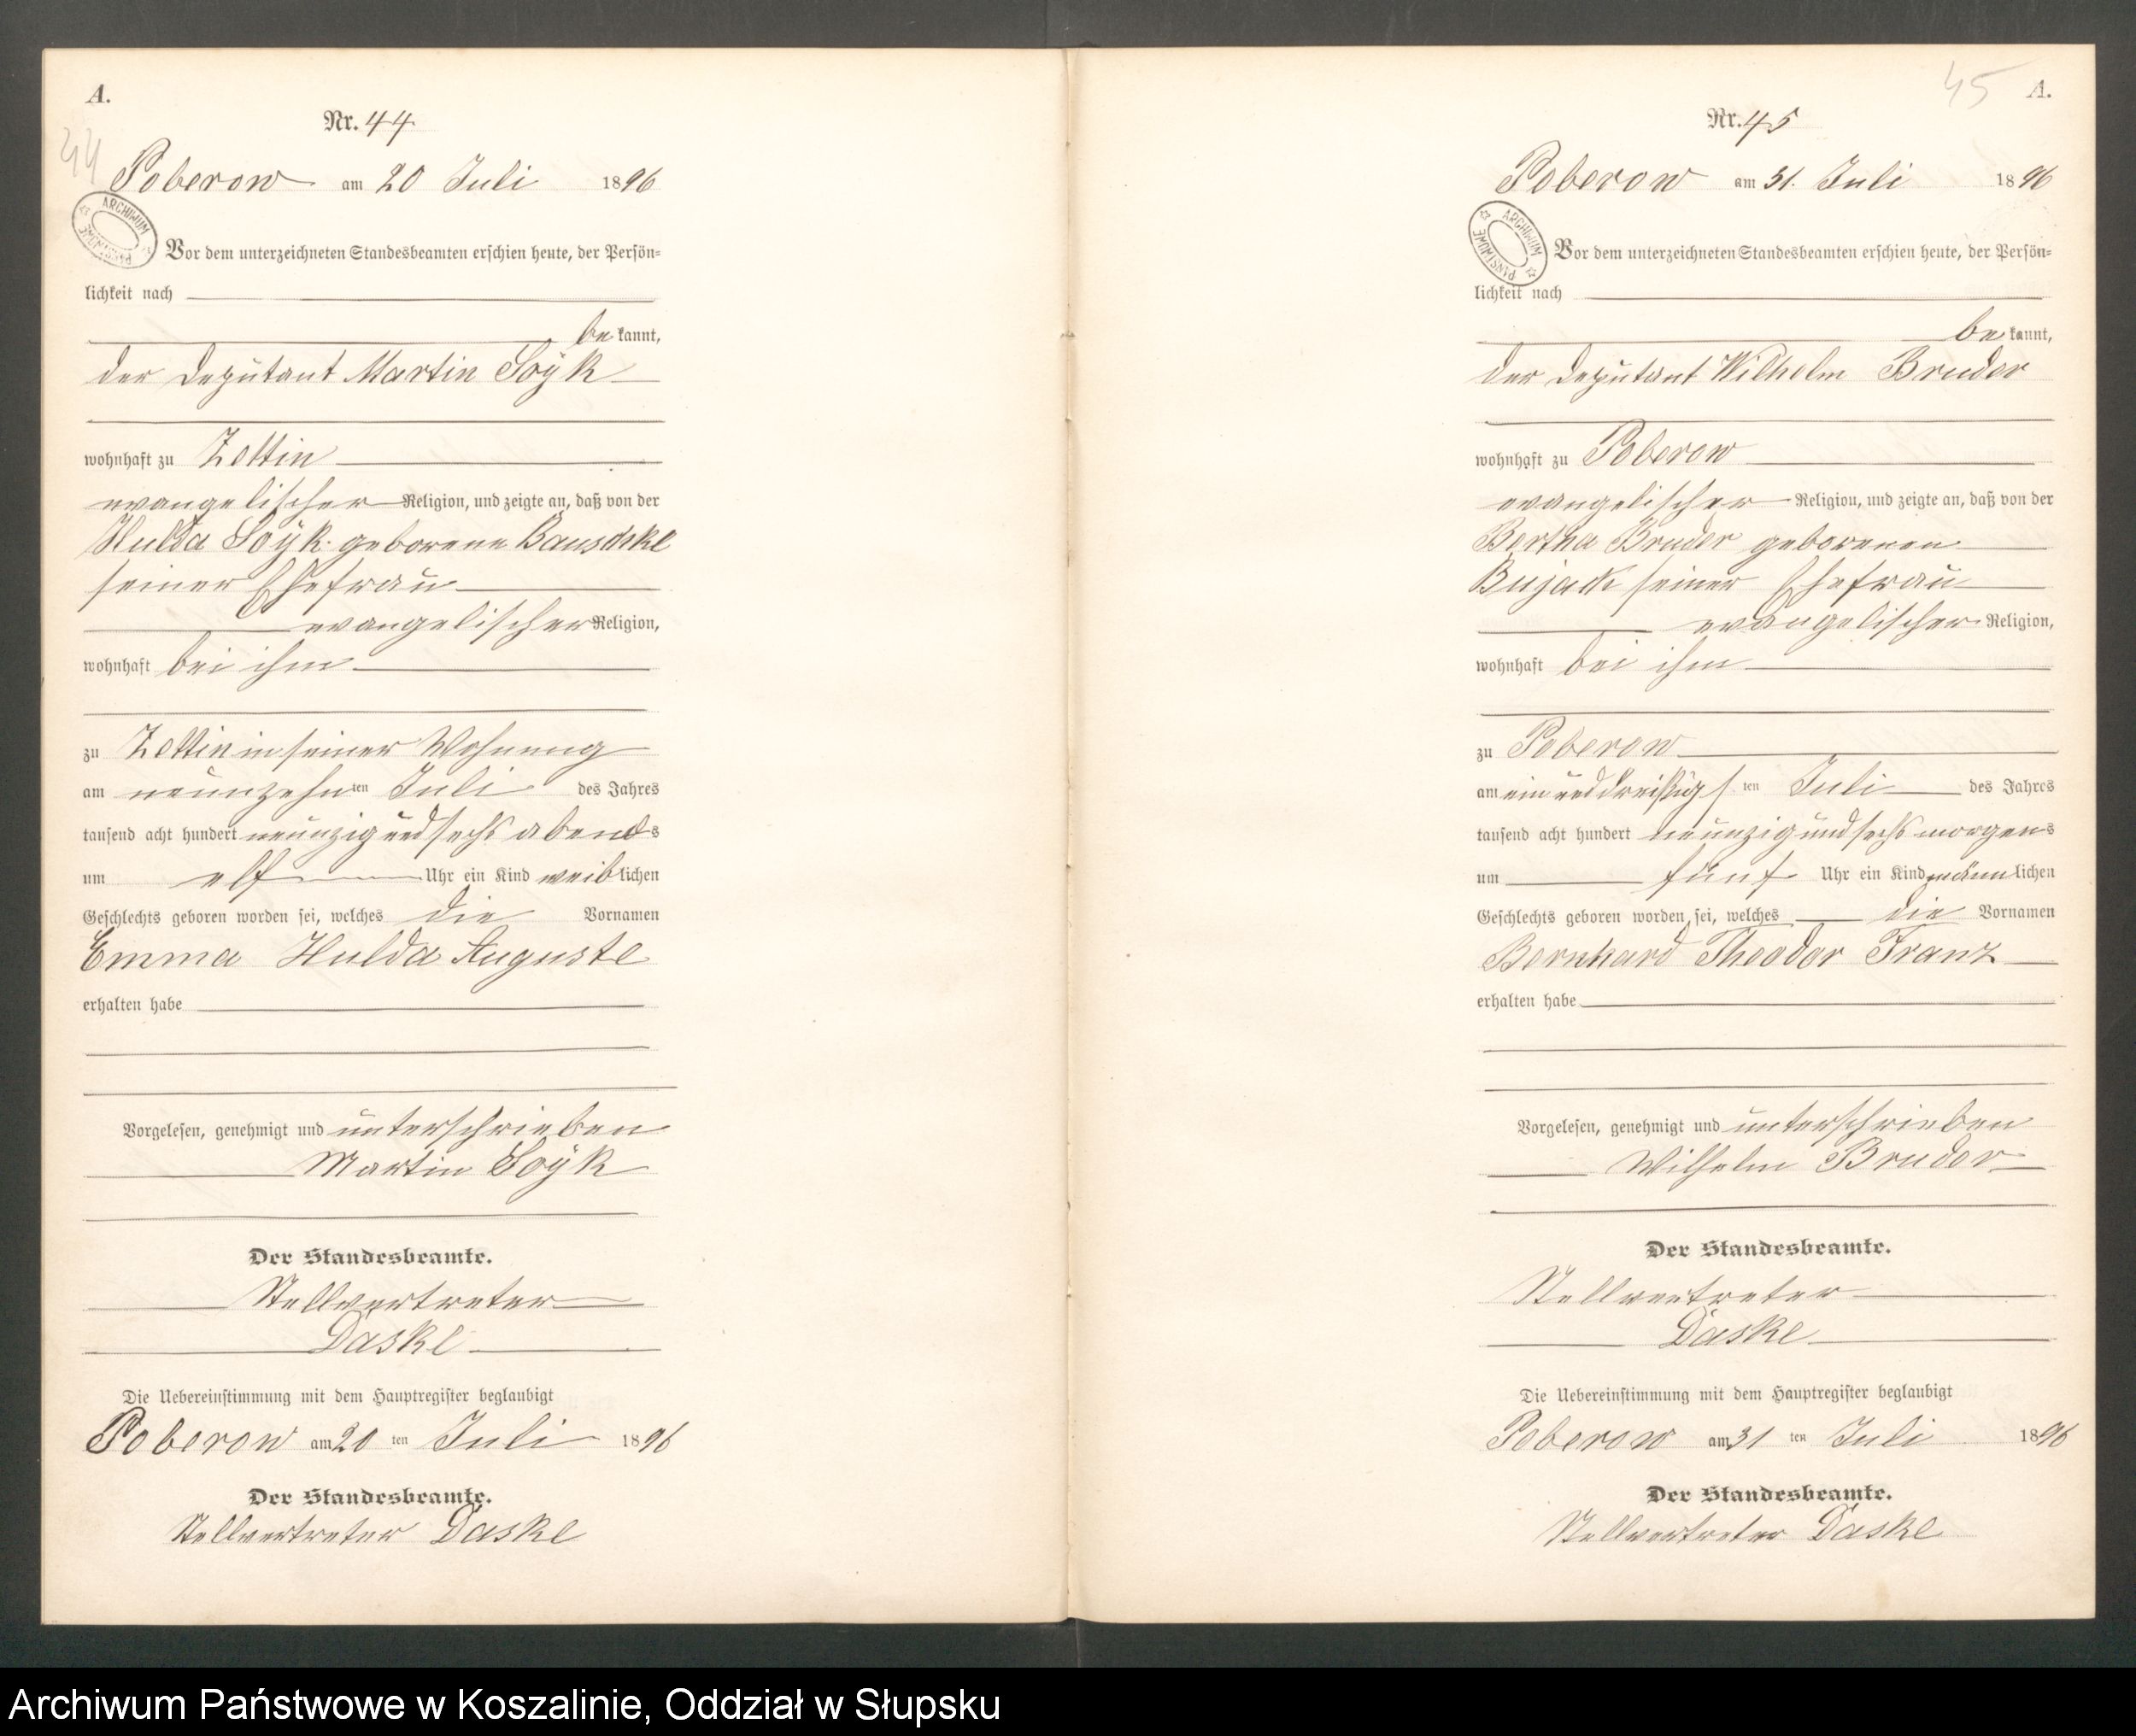 A.
Nr. 44
44
Poberow am 20 Juli 1896
ARCHIWUM PAŃSTWOWE
Vor dem unterzeichneten Standesbeamten erschien heute, der Persön-
lichkeit nach
bekannt,
der Deputant Martin Soÿk
wohnhaft zu Zettin
evangelischer Religion, und zeigte an, daß von der
Hulda Soÿk geborene
seiner Ehefrau
evangelischer Religion,
wohnhaft bei ihm
zu Zettin in seiner Wohnung
am neunzehnten Juli des Jahres
tausend acht hundert neunzig und sechs abends
um elf Uhr ein Kind weiblichen
Geschlechts geboren worden sei, welches die Vornamen
Emma Hulda Auguste
erhalten habe
Vorgelesen, genehmigt und unterschrieben
Martin Soÿk
Der Standesbeamte.
Stellvertreter
Daske
Die Uebereinstimmung mit dem Hauptregister beglaubigt
Poberow am 20 ten Juli 1896
Der Standesbeamte.
Stellvertreter Daske
45 A.
Nr. 45
Poberow am 31. Juli 1896
ARCHIWUM PAŃSTWOWE
Vor dem unterzeichneten Standesbeamten erschien heute, der Persön-
lichkeit nach
bekannt,
der Deputant Wilhelm Bruder
wohnhaft zu Poberow
evangelischer Religion, und zeigte an, daß von der
Bertha Bruder geborenen
Bujack seiner Ehefrau
evangelischer Religion,
wohnhaft bei ihm
zu Poberow
am ein und dreißigsten Juli des Jahres
tausend acht hundert neunzig und sechs morgens
um fünf Uhr ein Kind männlichen
Geschlechts geboren worden sei, welches die Vornamen
Bernhard Theodor Franz
erhalten habe
Vorgelesen, genehmigt und unterschrieben
Wilhelm Bruder
Der Standesbeamte.
Stellvertreter
Daske
Die Uebereinstimmung mit dem Hauptregister beglaubigt
Poberow am 31 ten Juli 1896
Der Standesbeamte.
Stellvertreter Daske
Archiwum Państwowe w Koszalinie, Oddział w Słupsku